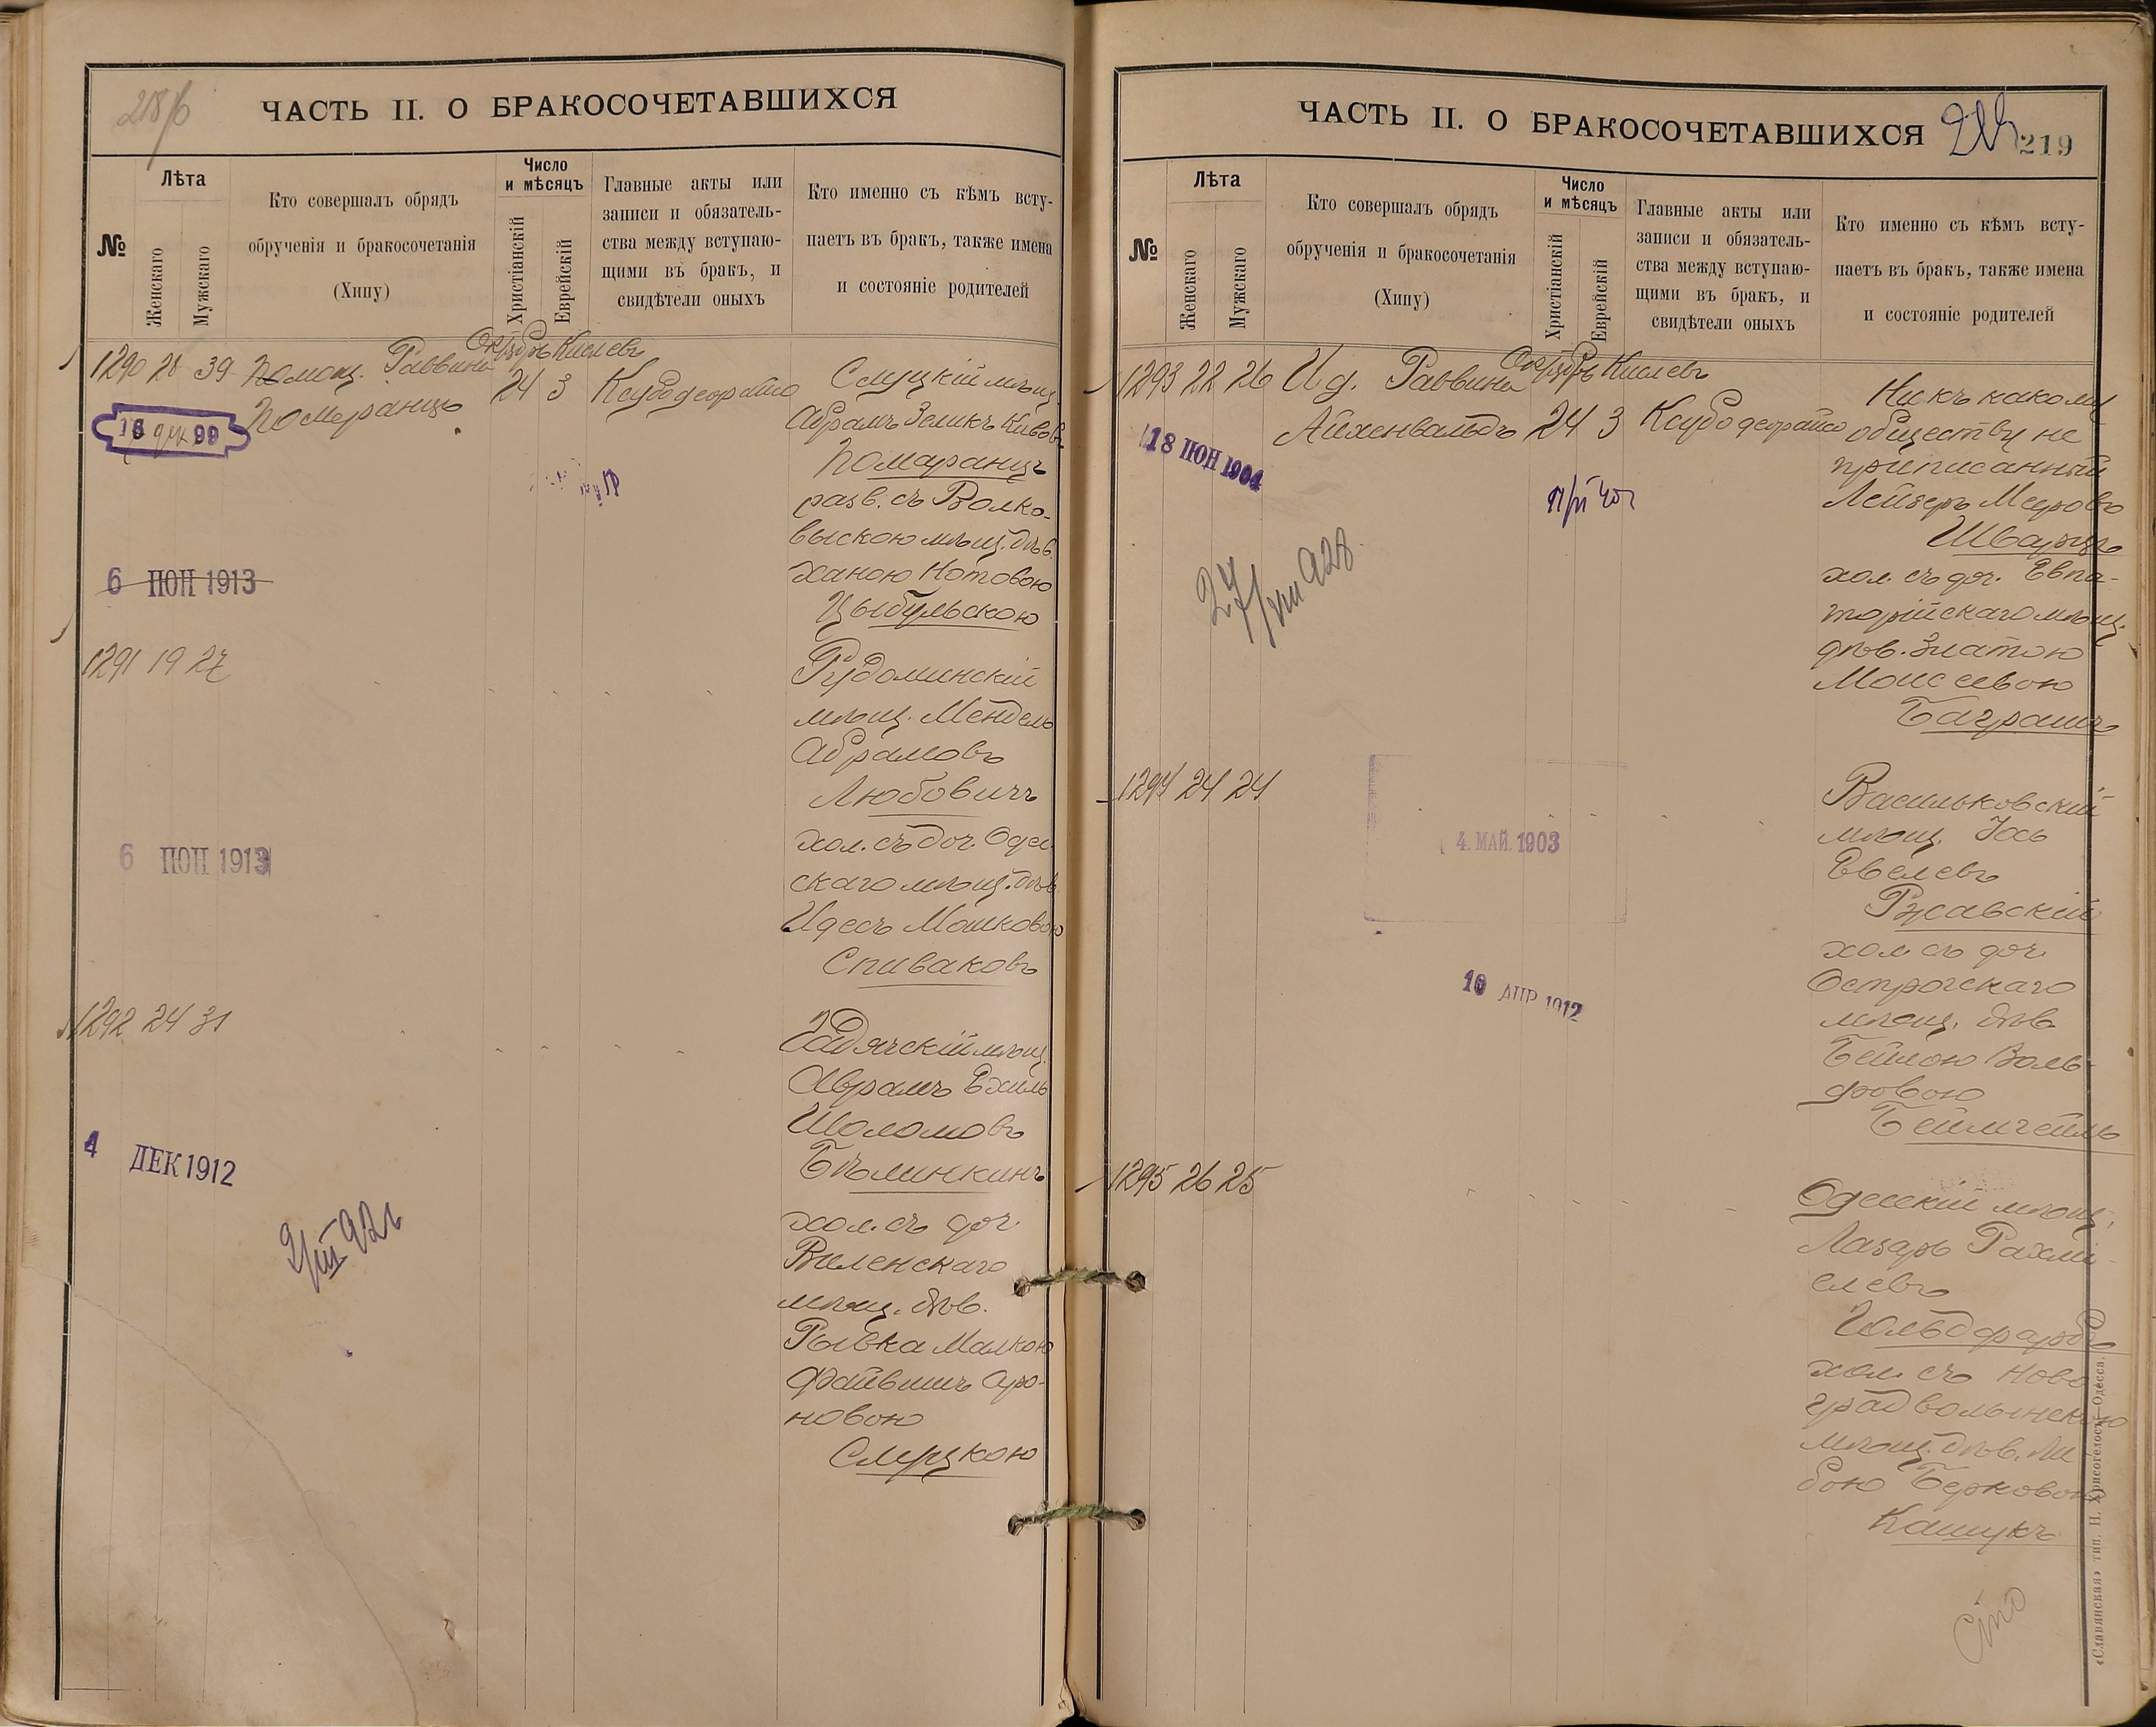 218/б
ЧАСТЬ II. О БРАКОСОЧЕТАВШИХСЯ
№
Лѣта
Женскаго
Мужскаго
Кто совершалъ обрядъ
обрученія и бракосочетанія
(Хипу)
Число
и мѣсяцъ
Христіанскій
Еврейскій
Главные акты или
записи и обязатель-
ства между вступаю-
щими въ бракъ, и
свидѣтели оныхъ
Кто именно съ кѣмъ всту-
паетъ въ бракъ, также имена
и состояніе родителей
1290 28 39 Помощ. Раввина
Померанцъ
Октябрь Кислевъ
24 3
Ксубодеорайсо
Слуцкій мѣщ.
Абрамъ Зеликъ Кивовъ
Помаранцъ
разв. съ Волко-
выскою мѣщ. дѣв.
Ханою Нотовою
Цыбульскою
6 ІЮН 1913
1291 19 27
Рудоминскій
мѣщ. Мендель
Абрамовъ
Любовичъ
хол. съ доч. Одес-
скаго мѣщ. дѣв.
Идесъ Мошковою
Спиваковъ
6 ІЮН 1913
1292 24 31
Гадячскій мѣщ.
Абрамъ Ехиль
Шоломовъ
Бѣлинкинъ
хол. съ доч.
Виленскаго
мѣщ. дѣв.
Рывка Малкою
Файвишъ Аро-
новою
Слуцкою
4 ДЕК 1912
ЧАСТЬ II. О БРАКОСОЧЕТАВШИХСЯ
219
№
Лѣта
Женскаго
Мужскаго
Кто совершалъ обрядъ
обрученія и бракосочетанія
(Хипу)
Число
и мѣсяцъ
Христіанскій
Еврейскій
Главные акты или
записи и обязатель-
ства между вступаю-
щими въ бракъ, и
свидѣтели оныхъ
Кто именно съ кѣмъ всту-
паетъ въ бракъ, также имена
и состояніе родителей
1293 22 26 И.д. Раввина
Айхенвальдъ
Октябрь Кислевъ
24 3
Ксубодеорайсо
Ни къ какому
обществу не
приписанный
Лейзеръ Мееровъ
Шварцъ
хол. съ доч. Евпа-
торійскаго мѣщ.
дѣв. Златою
Моисеевою
Баграшъ
18 ІЮН 1904
27/VIII 928
1294 24 24
Васильковскій
мѣщ. Іось
Евелевъ
Ржавскій
хол. съ доч.
Острогскаго
мѣщ. дѣв.
Бейлою Воль-
фовою
4. МАЙ. 1903
16 АПР 1912
1295 26 25
Одесскій мѣщ.
Лазарь Рахми-
елевъ
Гольдфарбъ
хол. съ Ново-
градволынскою
мѣщ. дѣв. Ли-
бою Берковою
Кашукъ
«Славянская» тип. Н. Хрисогелосъ, Одесса.